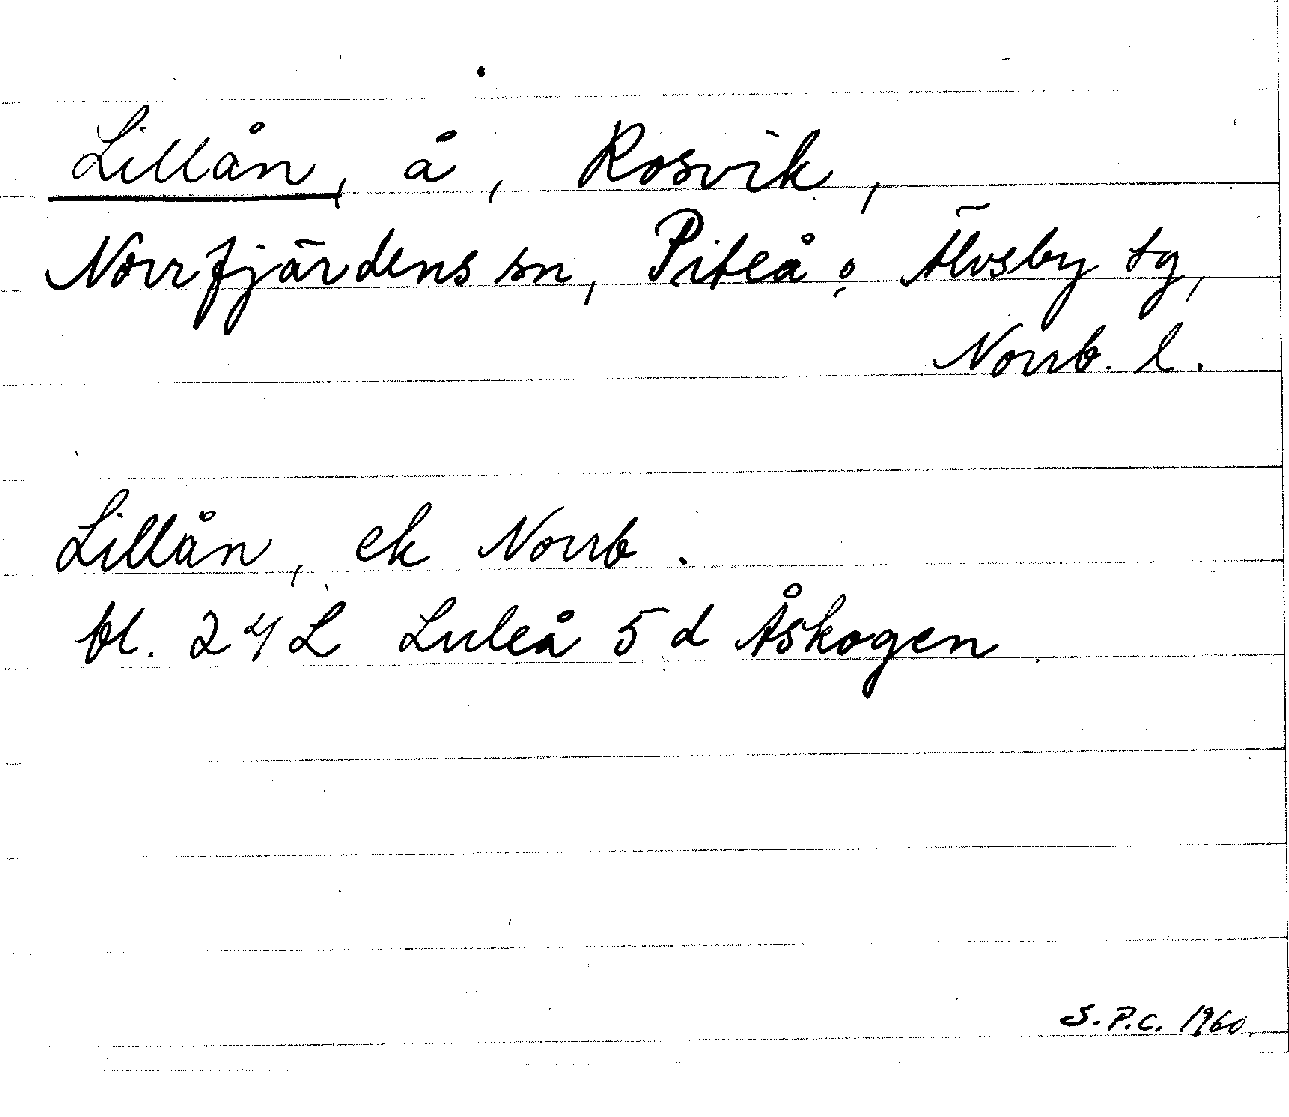 Lillån, å, Rosvik,
Norrfjärdens sn, Piteå o Älvsby tg,
Norrb. l.
Lillån, ek Norrb.
bl. 24 L Luleå 5 d Åskogen
S.P.C. 1960.